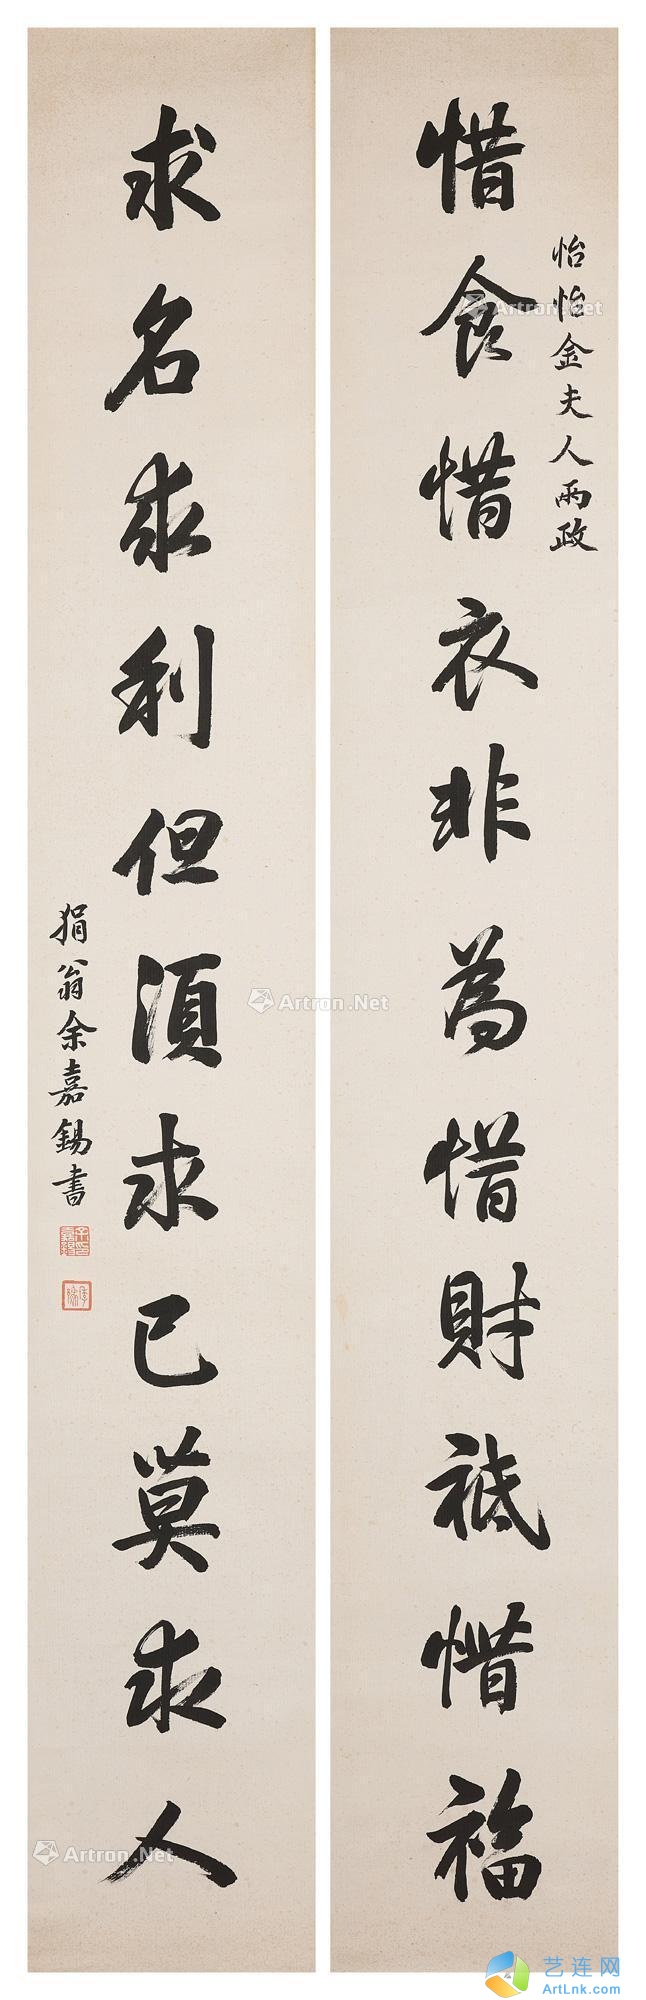 怡怡金夫人兩政
惜食惜衣非為惜財祗惜福
求名求利但須求己莫求人
狷翁余嘉錫書
Artron.Net
Artron.Net
Artron.Net
艺连网
ArtLnk.com